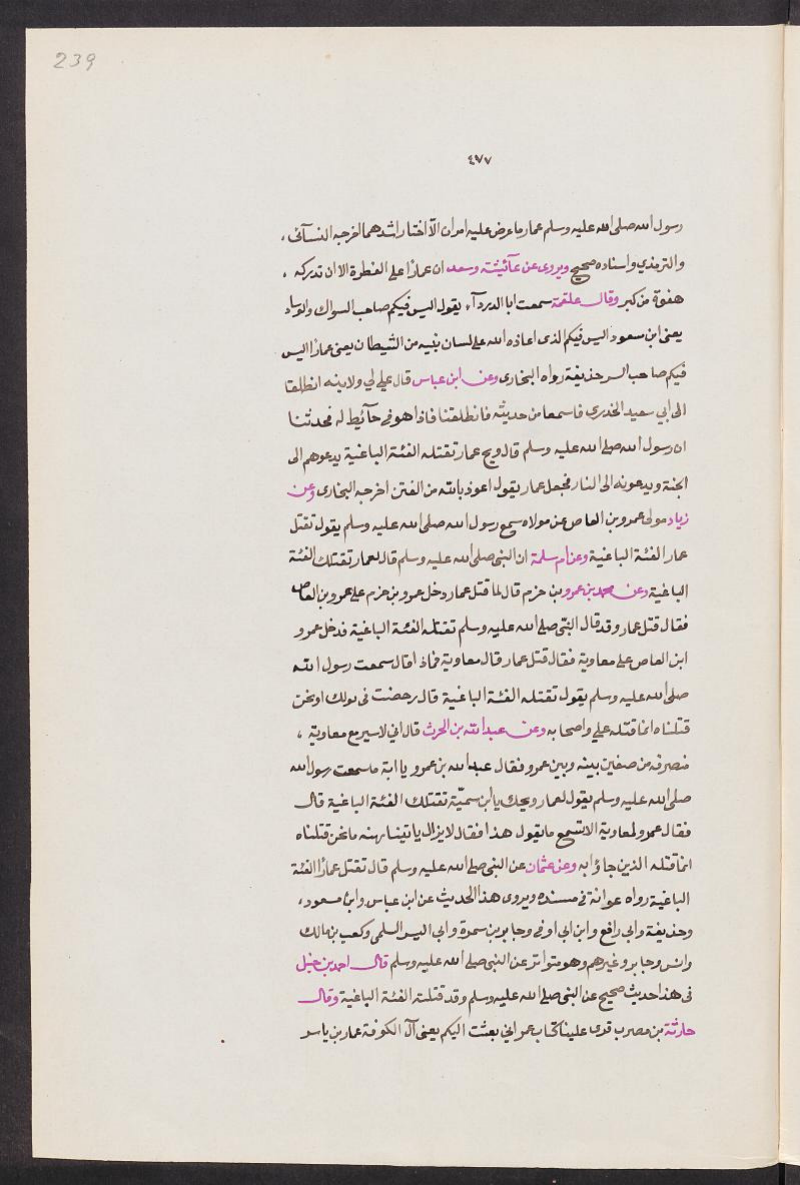 239
٤٧٧
رسول الله صلى الله عليه وسلم عمار ما عرض عليه امران الا اختار اشدهما اخرجه النسآئى،
والترمذي واسناده صحيح ويروى عن عآئيشة وسعد ان عمارا على الفطرة الا ان تدركه ،
هفوة من كبر وقال علقمة سمعت ابا الدردآء يقول اليس فيكم صاحب السواك والوساد
يعنى ابن سعود اليس فيكم الذى اعاذه الله على لسان نبيه من الشيطان يعنى عمارا اليس
فيكم صاحب السر حذيفة رواه البخارى وعن ابن عباس قال على لي ولابنه انطلقا
الى ابي سعيد الخدرى فاسمعا من حديثه فانطلقنا فاذا هو فى حآئيط له فحدثنا
ان رسول الله صلى الله عليه وسلم قال ويح عمار تقتله الفئة الباغية يدعوهم الى
الجنة ويدعونه الى النار فجعل عمار يقول اعوذ بالله من الفتن اخرجه البخارى وعن
زياد مولى عمرو بن العاص عن مولاه سمع رسول الله صلى الله عليه وسلم يقول تقتل
عمار الفئة الباغية وعن ام سلمة ان النبى صلى الله عليه وسلم قال لعمار تقتلك الفئة
الباغية وعن محمد بن عمرو بن حزم قال لما قتل عمار دخل عمرو بن حزم على عمرو بن العاص
فقال قتل عمار وقد قال النبى صلى الله عليه وسلم تقتله الفئة الباغية فدخل عمرو
ابن العاص على معاوية فقال قتل عمار قال معاوية فماذا قال سمعت رسول الله
صلى الله عليه وسلم يقول تقتله الفئة الباغية قال رحضت فى بولك اونحن
قتلناه انما قتله على واصحابه وعن عبدالله بن الحرث قال انى لاسير مع معاوية ،
منصرفه من صفين بينه وبين عمرو فقال عبدالله بن عمرو يا ابة ما سمعت رسول الله
صلى الله عليه وسلم يقول لعمار ويحك يا ابن سميّة تقتلك الفئة الباغية قال
فقال عمرو لمعاوية الا تسمع ما يقول هذا فقال لا يزال ياتينا بهنه ما نحن قتلناه
انما قتله الذين جاؤا به وعن عثمان عن النبى صلى الله عليه وسلم قال تقتل عمارا الفئة
الباغية رواه عوانة فى مسنده ويروى هذا الحديث عن ابن عباس وابن مسعود،
وحذيفة وابى رافع وابن ابى اوفى وجابر بن سمرة وابى اليسر السلمى وكعب بن مالك
وانس وجابر وغيرهم وهو متواتر عن النبى صلى الله عليه وسلم قال احمد بن حنبل
فى هذا حديث صحيح عن النبى صلى الله عليه وسلم وقد قتلته الفئة الباغية وقال
حارثة بن مضرب قرى علينا كتاب عمر انى بعثت اليكم يعنى آل الكوفة عمار بن ياسر